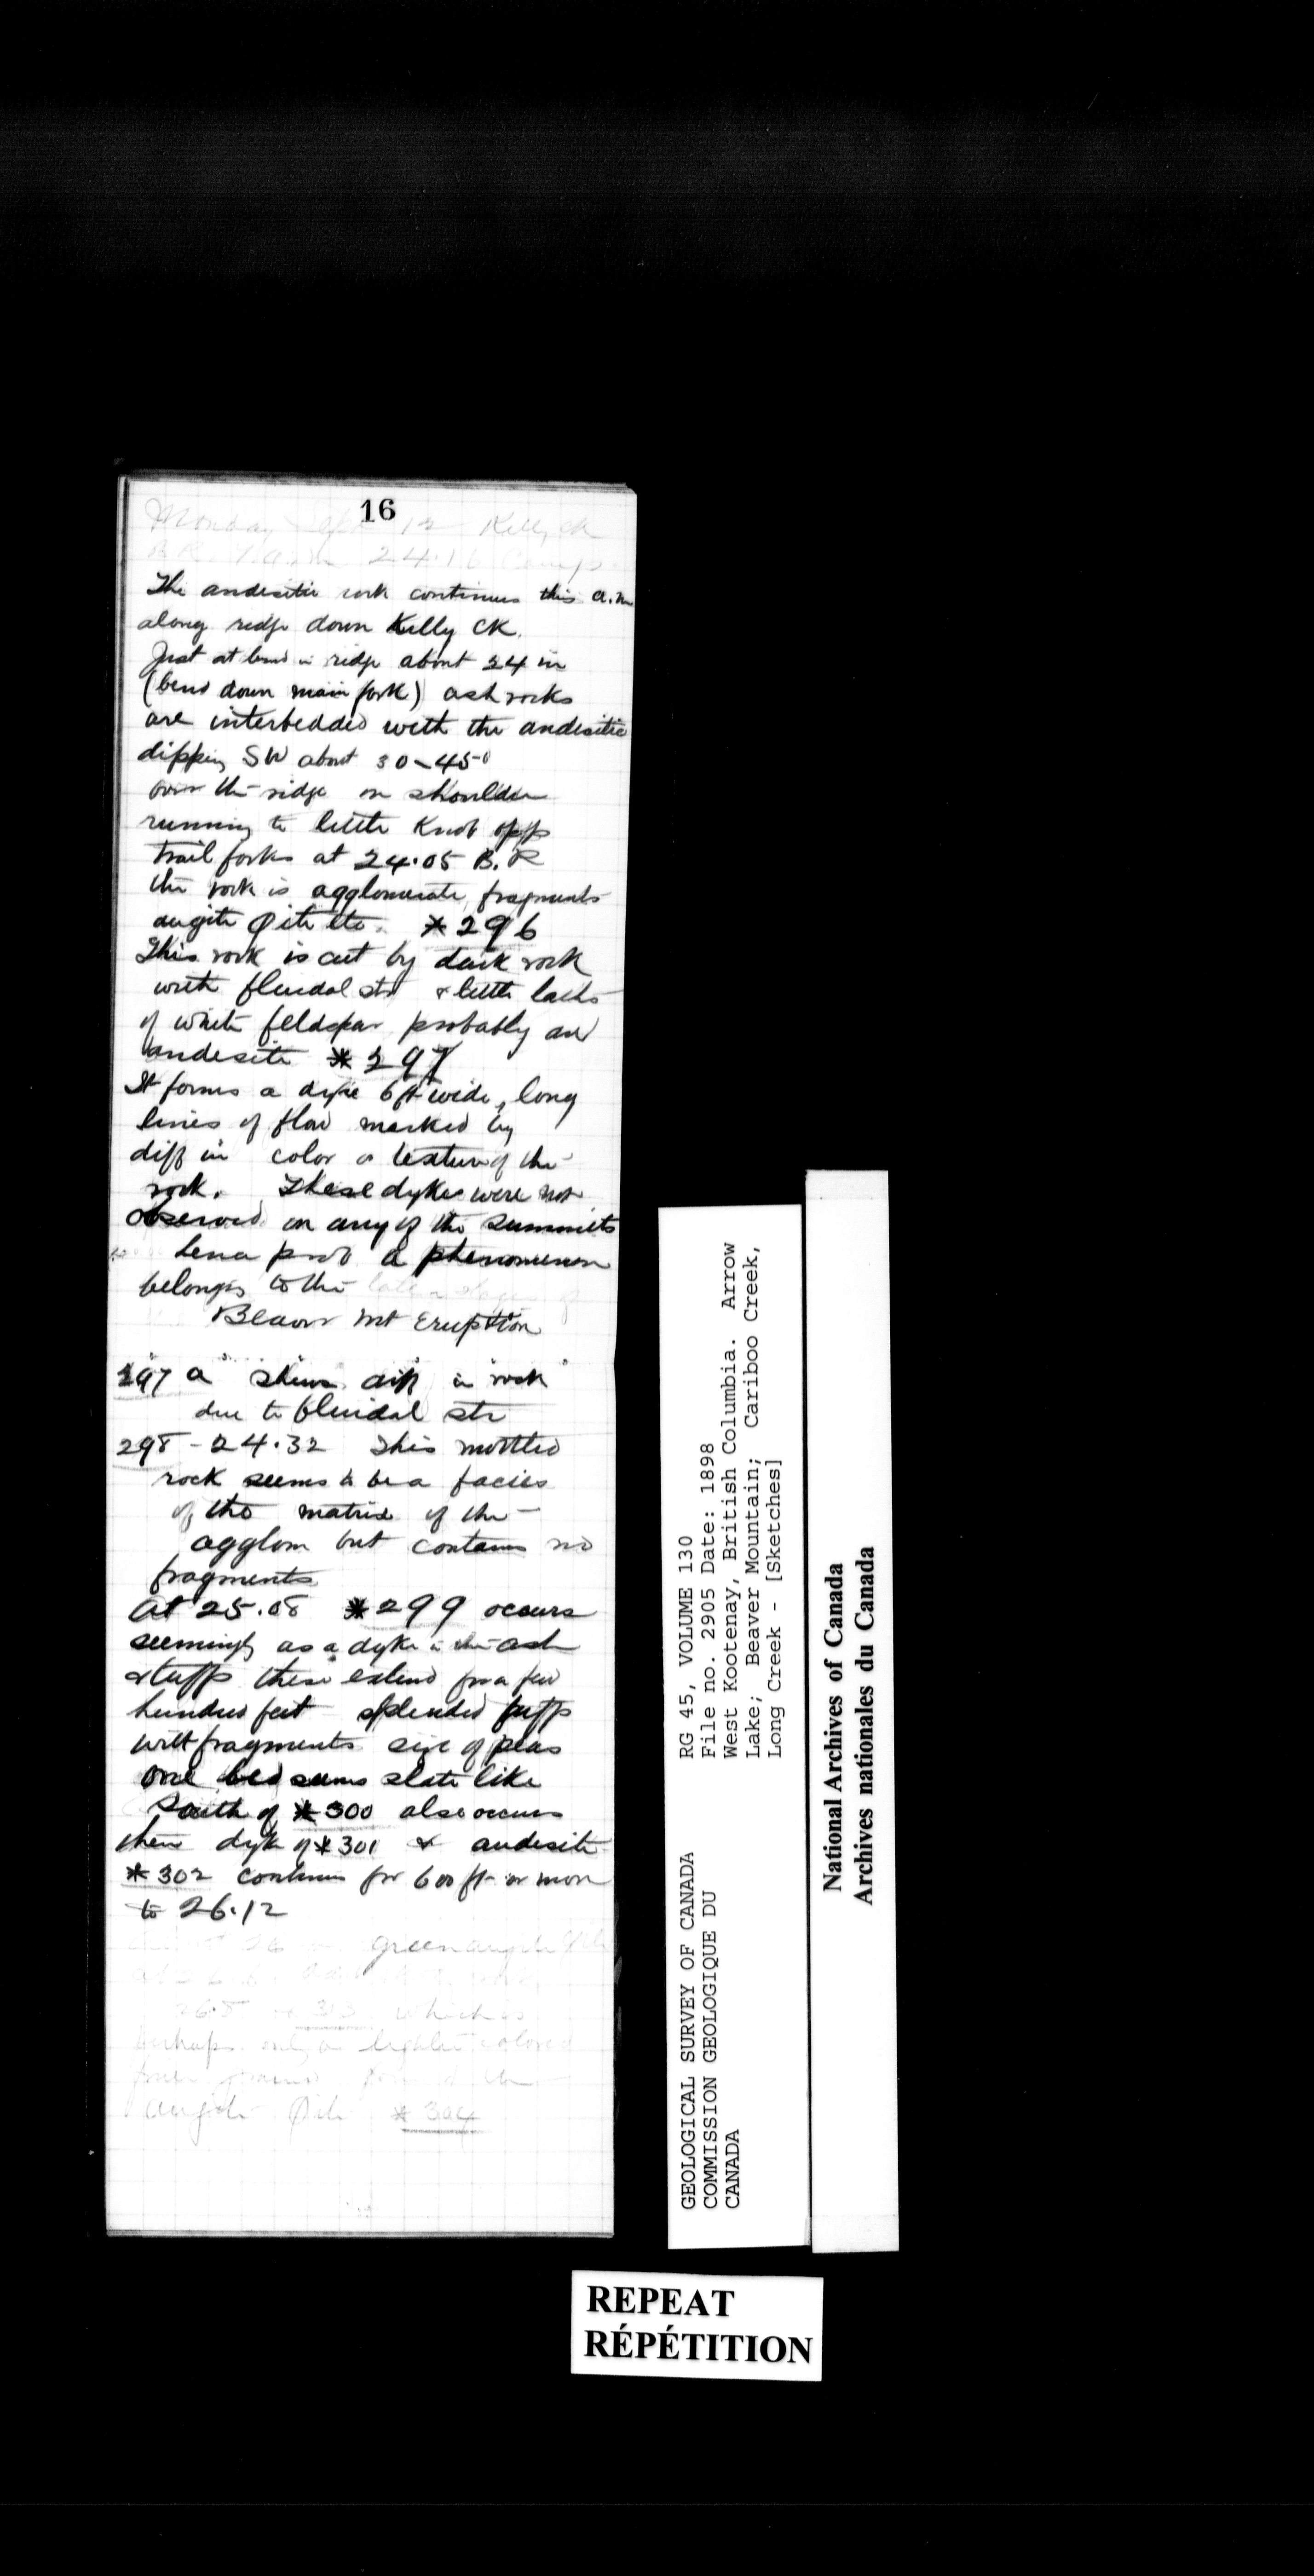 16
Monday Sept 12 Kelly Ck
24.16 Camp
The andesitic rock continues this a.m
along ridge down Kelly CK.
Just at bend in ridge about 24 in
(bend down main fork) ash rocks
are interbedded with the andesitic
dipping SW about 30-45°
over the ridge on shoulder
running to little Knob opp
trail forks at 24.05 B.R
the rock is agglomerate, fragments
augite Øite etc. *296
This rock is cut by dark rock
with fluidal str & little laths
of white feldspar probably an
andesite *297
It forms a dyke 6 ft wide, long
lines of flow marked by
diff in color or texture of the
rock. These dykes were not
observed on any of the summits
hence prob a phenomenon
belongs to the later stages of
Beaver Mt Eruption
297 a shows diff in rock
due to fluidal str
298 - 24.32 This mottled
rock seems to be a facies
of the matrix of the
agglom but contains no
fragments
At 25.08 *299 occurs
seemingly as a dyke in the ash
& tuffs these extend for a few
hundred feet splendid tuffs
with fragments size of peas
One bed seems slate like
South of *300 also occurs
then dyke of *301 & andesite
*302 continues for 600 ft or more
to 26.12
26 green augite
26.5 which is
perhaps only a lighter colored
finer grained form of the
augite Øite *304
RG 45, VOLUME 130
File no. 2905 Date: 1898
West Kootenay, British Columbia. Arrow
Lake; Beaver Mountain; Cariboo Creek,
Long Creek - [Sketches]
GEOLOGICAL SURVEY OF CANADA
COMMISSION GEOLOGIQUE DU
CANADA
National Archives of Canada
Archives nationales du Canada
REPEAT
RÉPÉTITION